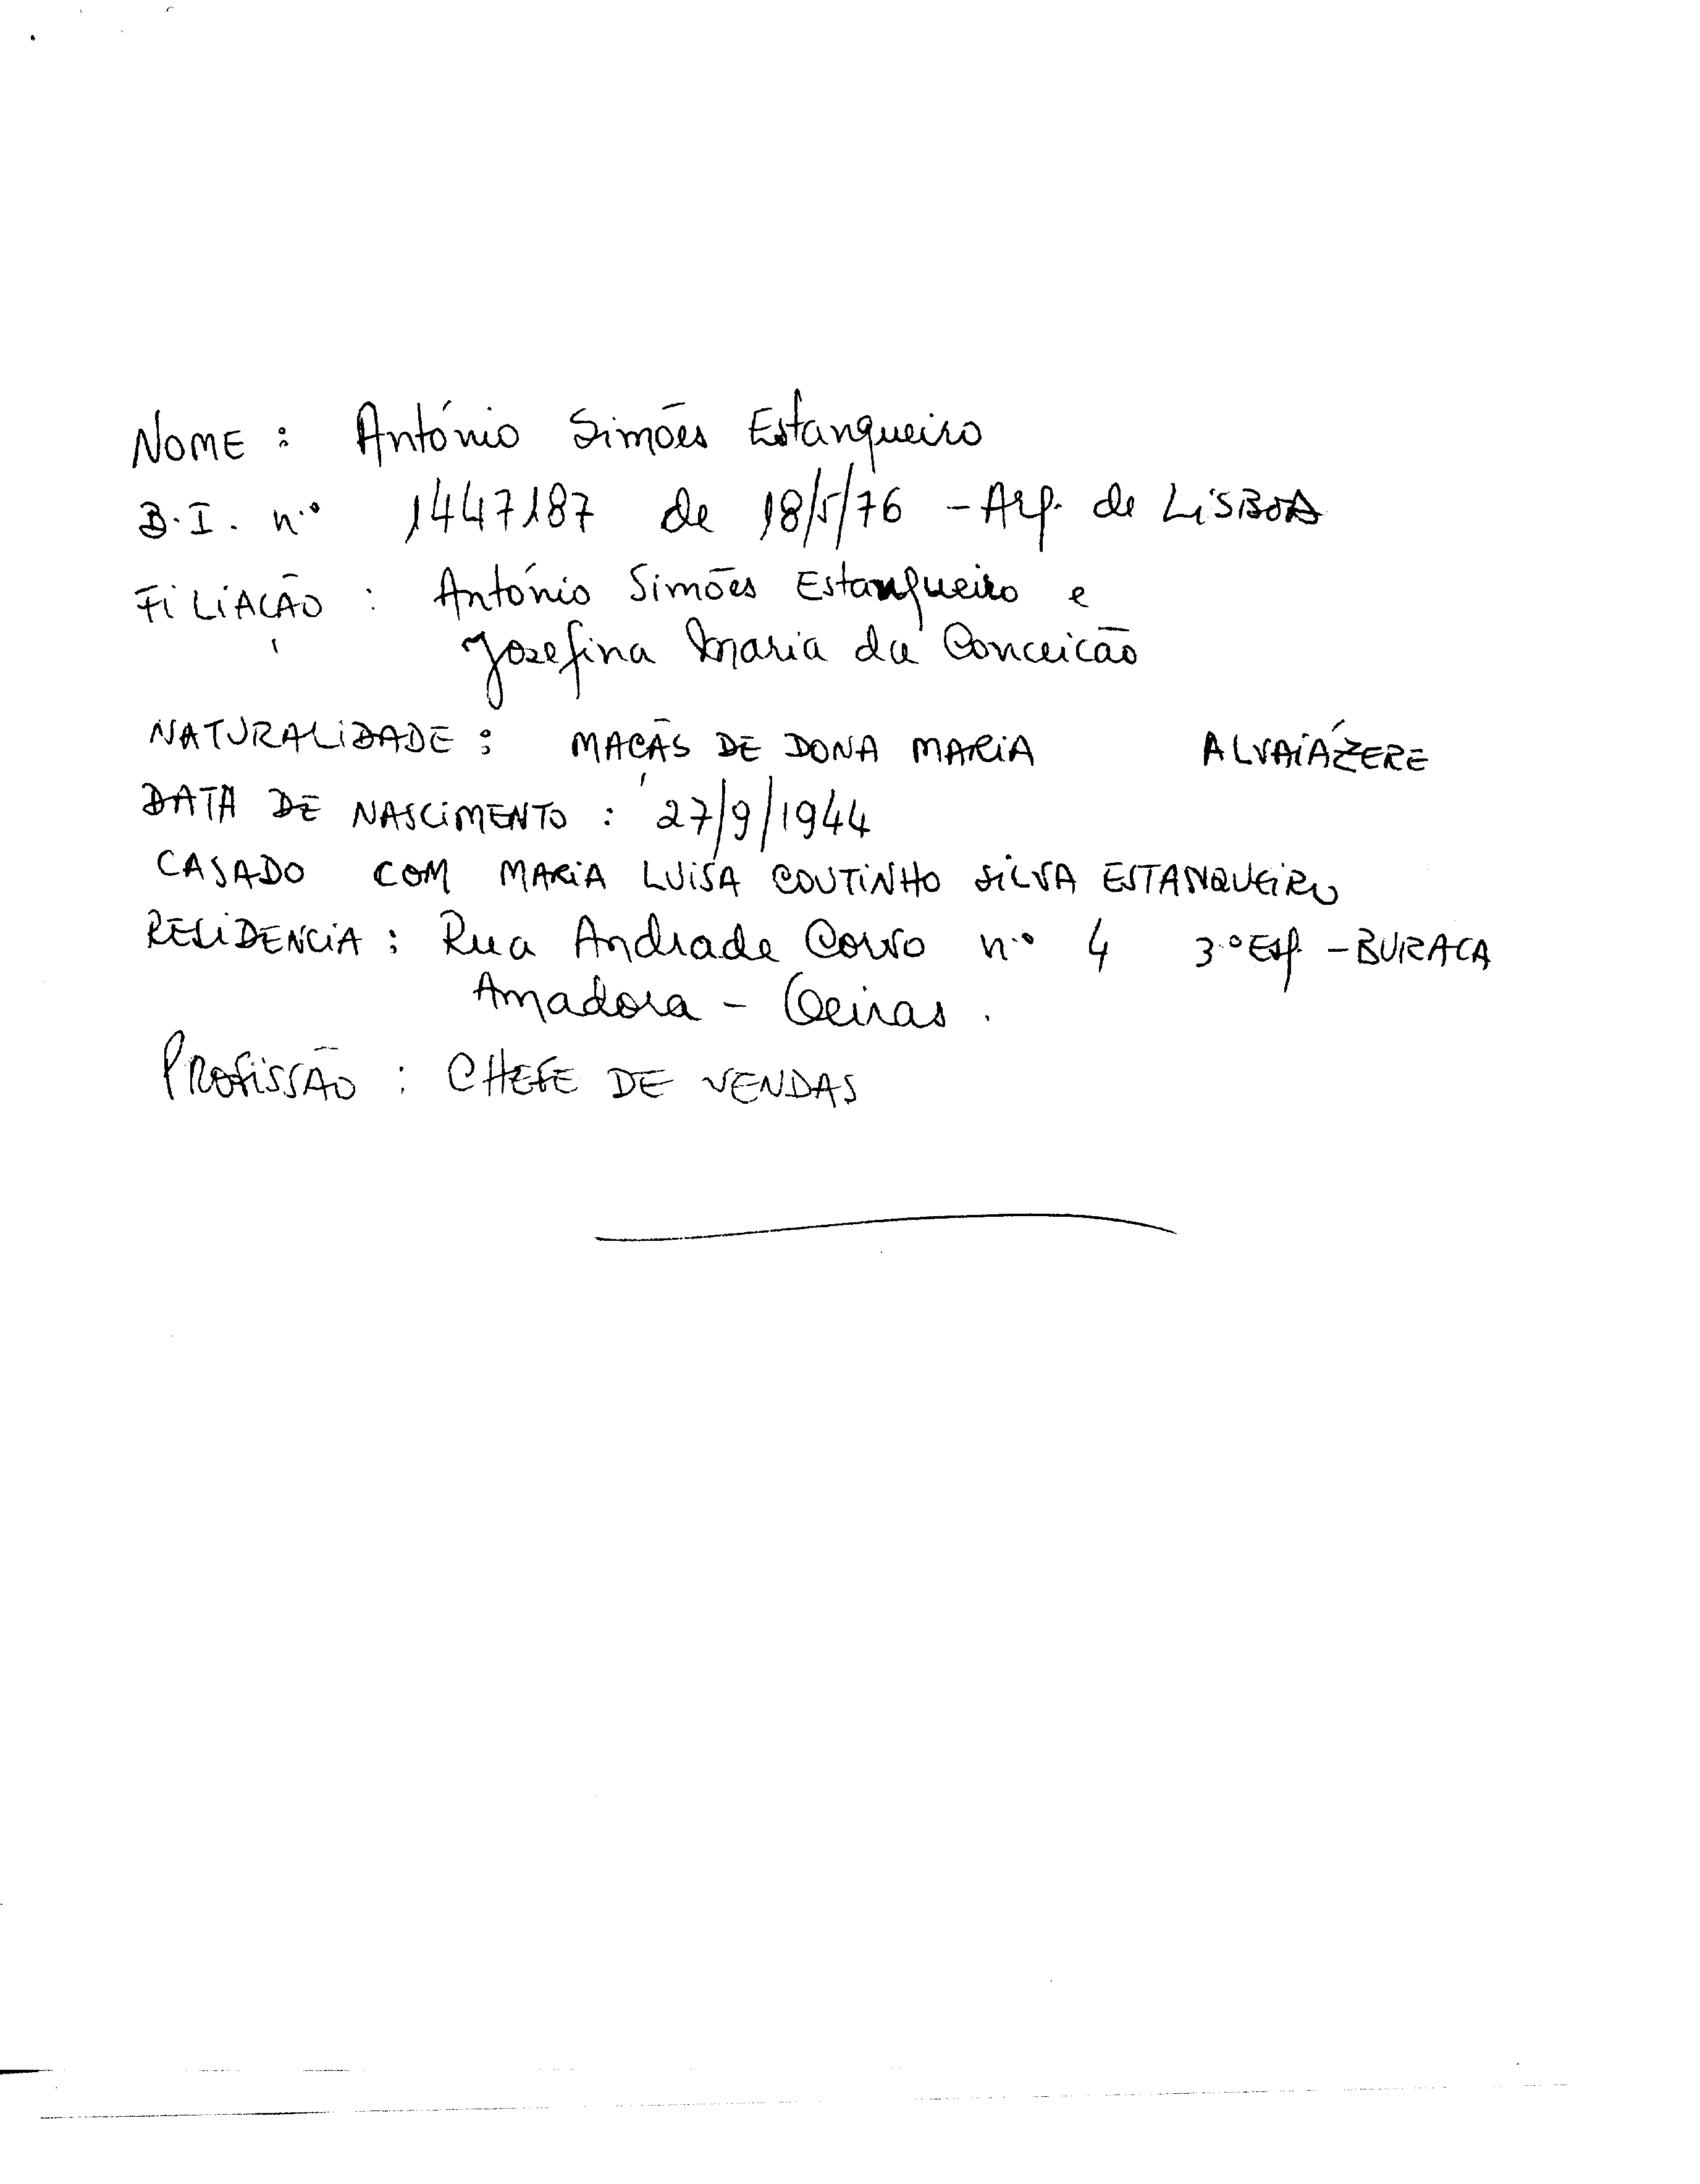 NOME : António Simões Estanqueiro
B.I. nº 1447187 de 18/5/76 - Arq. de LISBOA
FILIAÇÃO : António Simões Estanqueiro e
Josefina Maria da Conceição
NATURALIDADE : MAÇÃS DE DONA MARIA ALVAIÁZERE
DATA DE NASCIMENTO : 27/9/1944
CASADO COM MARIA LUISA COUTINHO SILVA ESTANQUEIRO
RESIDENCIA : Rua Andrade Corvo nº 4 3º Esq. - BURACA
Amadora - Oeiras.
PROFISSÃO : CHEFE DE VENDAS